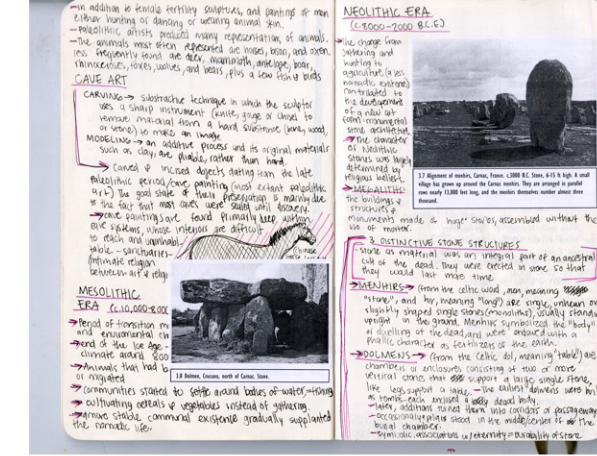 -in addition to female fertility sculptures, and paintings of men
either hunting or dancing or wearing animal skin.
-paleolithic artists produced many representation of animals.
-The animals most often represented are horses, bison, and oxen.
less frequently found are deer, mammoth, antelope, boar,
rhinoceroses, foxes, wolves, and bears, plus a few fish & birds
CAVE ART
CARVING → subtractive technique in which the sculptor
uses a sharp instrument (knife, gouge or chisel) to
remove material from a hard substance (bone, wood,
or stone) to make an image
MODELING → an additive process and its original materials
such as clay, are pliable, rather than hard.
Carved & incised objects dating from the late
paleolithic period/cave painting (most extant paleolithic
art) The goal state of their preservation is mainly due
to the fact that most caves were sealed until discovery.
→cave paintings are found primarily keep within
cave systems, whose interiors are difficult
to reach and uninhabi-
table - sanctuaries-
intimate religion
between art & relig
Chinese
Horse
MESOLITHIC
ERA (c.10,000-8000
→Period of transition m
and environmental ch
→end of the Ice Age -
climate around 800
→Animals that had b
or migrated
→communities started to settle around bodies of water→fishing
→cultivating cereals & vegetables instead of gathering.
→a more stable communal existence gradually supplanted
the nomadic life.
3.8 Dolmen, Crucuno, north of Carnac. Stone.
NEOLITHIC ERA
(c.8000-2000 B.C.E.)
→The change from
gathering and
hunting to
agriculture (a less
nomadic existence)
contributed to
the development
of a new art
form-monumental
stone architecture.
→The character
of Neolithic
stones was largely
determined by
religious beliefs.
→MEGALITHS
the buildings &
structures &
monuments made of huge stones, assembled without the
use of mortar.
3.7 Alignment of menhirs, Carnac, France. c.3000 B.C. Stone, 6-15 ft high. A small
village has grown up around the Carnac menhirs. They are arranged in parallel
rows nearly 13,000 feet long, and the menhirs themselves number almost three
thousand.
3 DISTINCTIVE STONE STRUCTURES
-stone as material was an integral part of an ancestral
cult of the dead. They were erected in stone so that
they would last more time.
→MENHIRS→(from the celtic word, men, meaning
"stone", and hir, meaning "long") are single, unhewn or
slightly shaped single stones (monoliths), usually standing
upright in the ground. Menhirs symbolized the "body"
or dwelling of the dead, and were endowed with a
phallic character as fertilizers of the earth.
→DOLMENS→(from the Celtic dol, meaning "table") are
chambers or enclosures consisting of two or more
vertical stones that support a large single stone,
like legs support a table. -The earliest dolmens were built
as tombs-each enclosed a body dead body.
-later, additions turned them into corridors or passageways
-occasionally, pillars stood in the middle/center of the
burial chamber.
-symbolic associations w/eternity→durability of stone